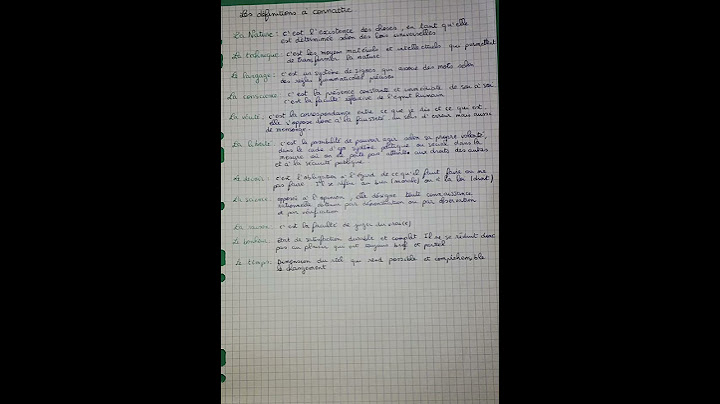 Les définitions à connaître
La Nature : c'est l'existence des choses, en tant qu'elle
est déterminée selon des lois universelles
La technique : c'est les moyens matériels et intellectuels qui permettent
de transformer la nature
Le langage : c'est un système de signes qui associe des mots selon
des règles grammaticales précises
La conscience : c'est la présence constante et immédiate de soi à soi
c'est la faculté réflexive de l'esprit humain
La vérité : c'est la correspondance entre ce que je dis et ce qui est
elle s'oppose donc à la fausseté au sens d'erreur mais aussi
de mensonge.
La liberté : c'est la possibilité de pouvoir agir selon sa propre volonté,
dans le cadre d'un système politique ou social dans la
mesure où on ne porte pas atteinte aux droits des autres
et à la sécurité publique
Le devoir : c'est l'obligation à l'égard de ce qu'il faut faire ou ne
pas faire. Il se réfère au bien (morale) ou à la loi (droit)
La science : opposée à l'opinion, elle désigne toute connaissance
rationnelle obtenue par démonstration ou par observation
et par vérification
La raison : c'est la faculté de juger du vrai
Le bonheur : état de satisfaction durable et complet Il ne se réduit donc
pas au plaisir qui est toujours bref et partiel
Le temps : Dimension du réel qui rend possible et compréhensible
le changement